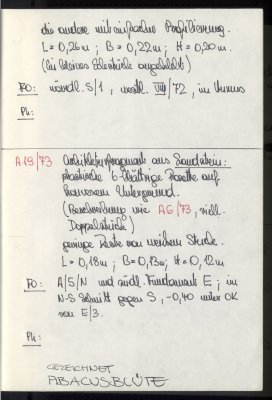 die andere mit einfacher Profilierung.
L = 0,26m ; B = 0,22m ; H = 0,20m.
(in kleines Eckstück angeklebt)
FO: nördl. S/1, westl. VIII/72, im Humus
Ph:
A19/73 Architekturfragment aus Sandstein:
plastische 6-blättrige Rosette auf
konvexem Untergrund.
(Beschreibung wie A6/73, viell.
Doppelstück)
geringe Reste von weißem Stuck.
L = 0,18m ; B = 0,13m ; H = 0,12m
FO: A/S/N und südl. Fundament E ; im
N-S Schnitt gegen S, -0,40 unter OK
von E/3.
Ph:
GEZEICHNET
ABACUSBLÜTE